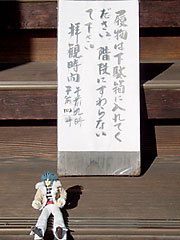 履物は下駄箱に入れてく
ださい 階段にすわらない
で下さい
拝観時間
午前九時
午后四時